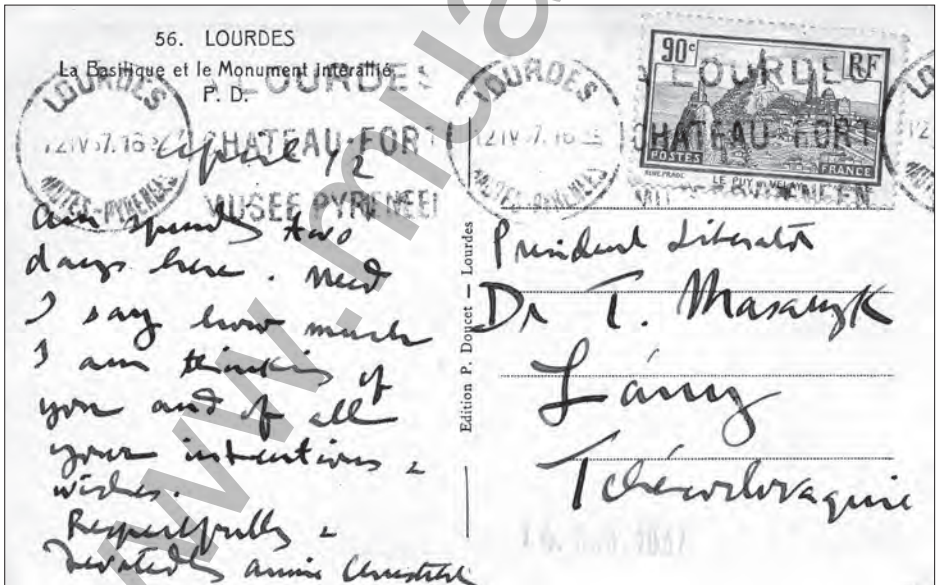 56. LOURDES
La Basilique et le Monument interallié
P. D.
LOURDES
12 IV 37. 16
HAUTES-PYRENEES
LOURDES
CHATEAU-FORT
MUSEE PYRENEEN
LOURDES
12 IV 37. 16
HAUTES-PYRENEES
90c RF
LOURDES
CHATEAU-FORT
POSTES FRANCE
LE PUY-EN-VELAY
April 12
Am spending two
days here. Need
I say how much
I am thinking of
you and of all
your intentions &
wishes.
Respectfully &
Devotedly Annie
Edition P. Doucet — Lourdes
President Liberator
Dr T. Masaryk
Lány
Tchécoslovaquie
www.mua